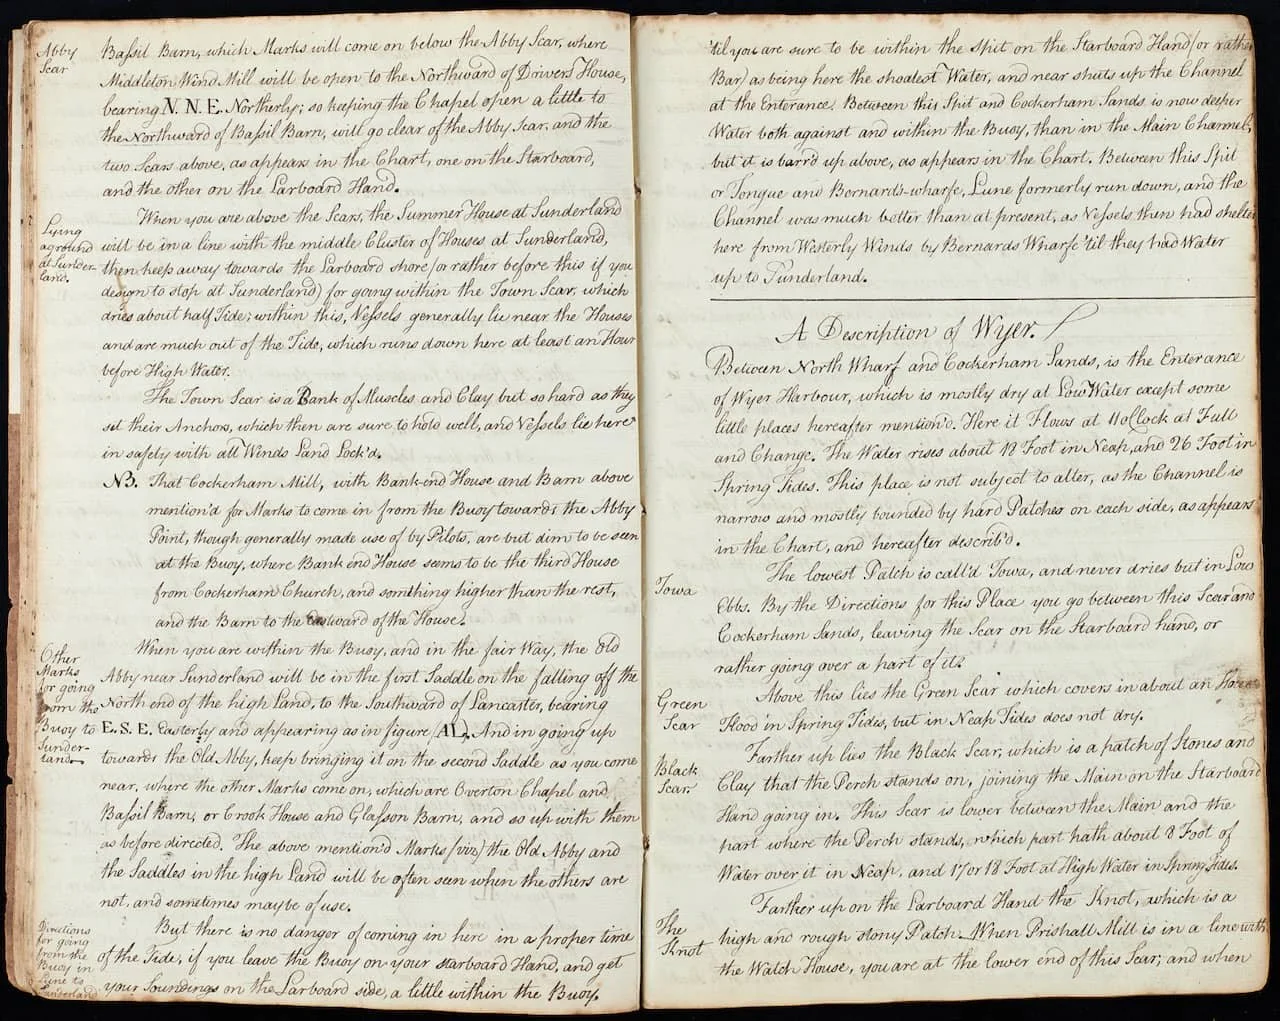 Abby
Scar
Bassil Barn, which Marks will come on below the Abby Scar, where
Middleton Wind Mill will be open to the Northward of Drivers House,
bearing N. N. E. Northerly; so keeping the Chapel open a little to
the Northward of Bassil Barn, will go clear of the Abby Scar, and the
two Scars above, as appears in the Chart, one on the Starboard,
and the other on the Larboard Hand.
Lying
aground
at Sunder-
land.
When you are above the Scars, the Summer House at Sunderland
will be in a line with the middle Cluster of Houses at Sunderland,
then keep away towards the Larboard shore (or rather before this if you
design to stop at Sunderland) for going within the Town Scar, which
dries about half Tide; within this, Vessels generally lie near the Houses
and are much out of the Tide, which runs down here at least an Hour
before High Water.
The Town Scar is a Bank of Muscles and Clay but so hard as they
set their Anchors, which then are sure to hold well, and Vessels lie here
in safety with all Winds Land Lock'd.
NB. That Cockerham Mill, with Bank-end House and Barn above
mention'd for Marks to come in from the Buoy towards the Abby
Point, though generally made use of by Pilots, are but dim to be seen
at the Buoy, where Bank end House seems to be the third House
from Cockerham Church, and somthing higher than the rest,
and the Barn to the Eastward of the House.
Other
Marks
for going
from the
Buoy to
Sunder-
land.
When you are within the Buoy, and in the fair Way, the Old
Abby near Sunderland will be in the first Saddle on the falling off the
North end of the high Land, to the Southward of Lancaster, bearing
E. S. E. Easterly and appearing as in figure (AL). And in going up
towards the Old Abby, keep bringing it on the second Saddle as you come
near, where the other Marks come on, which are Overton Chapel and
Bassil Barn, or Crook House and Glasson Barn, and so up with them
as before directed. The above mention'd Marks (viz) the Old Abby and
the Saddles in the high Land will be often seen when the others are
not, and sometimes may be of use.
Directions
for going
from the
Buoy in
Lune to
Sunderland
But there is no danger of coming in here in a proper time
of the Tide, if you leave the Buoy on your starboard Hand, and get
your Soundings on the Larboard side, a little within the Buoy.
'til you are sure to be within the spit on the Starboard Hand (or rather
Bar) as being here the shoalest Water, and near shuts up the Channel
at the Enterance. Between this Spit and Cockerham Sands is now deeper
Water both against and within the Buoy, than in the Main Channel,
but it is barr'd up above, as appears in the Chart. Between this Spit
or Tongue and Bernard's-wharfe, Lune formerly run down, and the
Channel was much better than at present, as Vessels then had shelter
here from Westerly Winds by Bernards Wharfe 'til they had Water
up to Sunderland.
A Description of Wyer.
Between North Wharf and Cockerham Sands, is the Enterance
of Wyer Harbour, which is mostly dry at Low Water except some
little places hereafter mention'd. Here it Flows at 11 oClock at Full
and Change. The Water rises about 18 Foot in Neap, and 26 Foot in
Spring Tides. This place is not subject to alter, as the Channel is
narrow and mostly bounded by hard Patches on each side, as appears
in the Chart, and hereafter describ'd.
Towa
The lowest Patch is call'd Towa, and never dries but in Low
Ebbs. By the Directions for this Place you go between this Scar and
Cockerham Sands, leaving the Scar on the Starboard hand, or
rather going over a part of it.
Green
Scar
Above this lies the Green Scar which covers in about an Hours
Flood in Spring Tides, but in Neap Tides does not dry.
Black
Scar.
Farther up lies the Black Scar, which is a patch of Stones and
Clay that the Perch stands on, joining the Main on the Starboard
Hand going in. This Scar is lower between the Main and the
part where the Perch stands, which part hath about 8 Foot of
Water over it in Neap, and 17 or 18 Foot at High Water in Spring Tides.
The
Knot
Farther up on the Larboard Hand the Knot, which is a
high and rough stony Patch. When Prishall Mill is in a line with
the Watch House, you are at the lower end of this Scar; and when